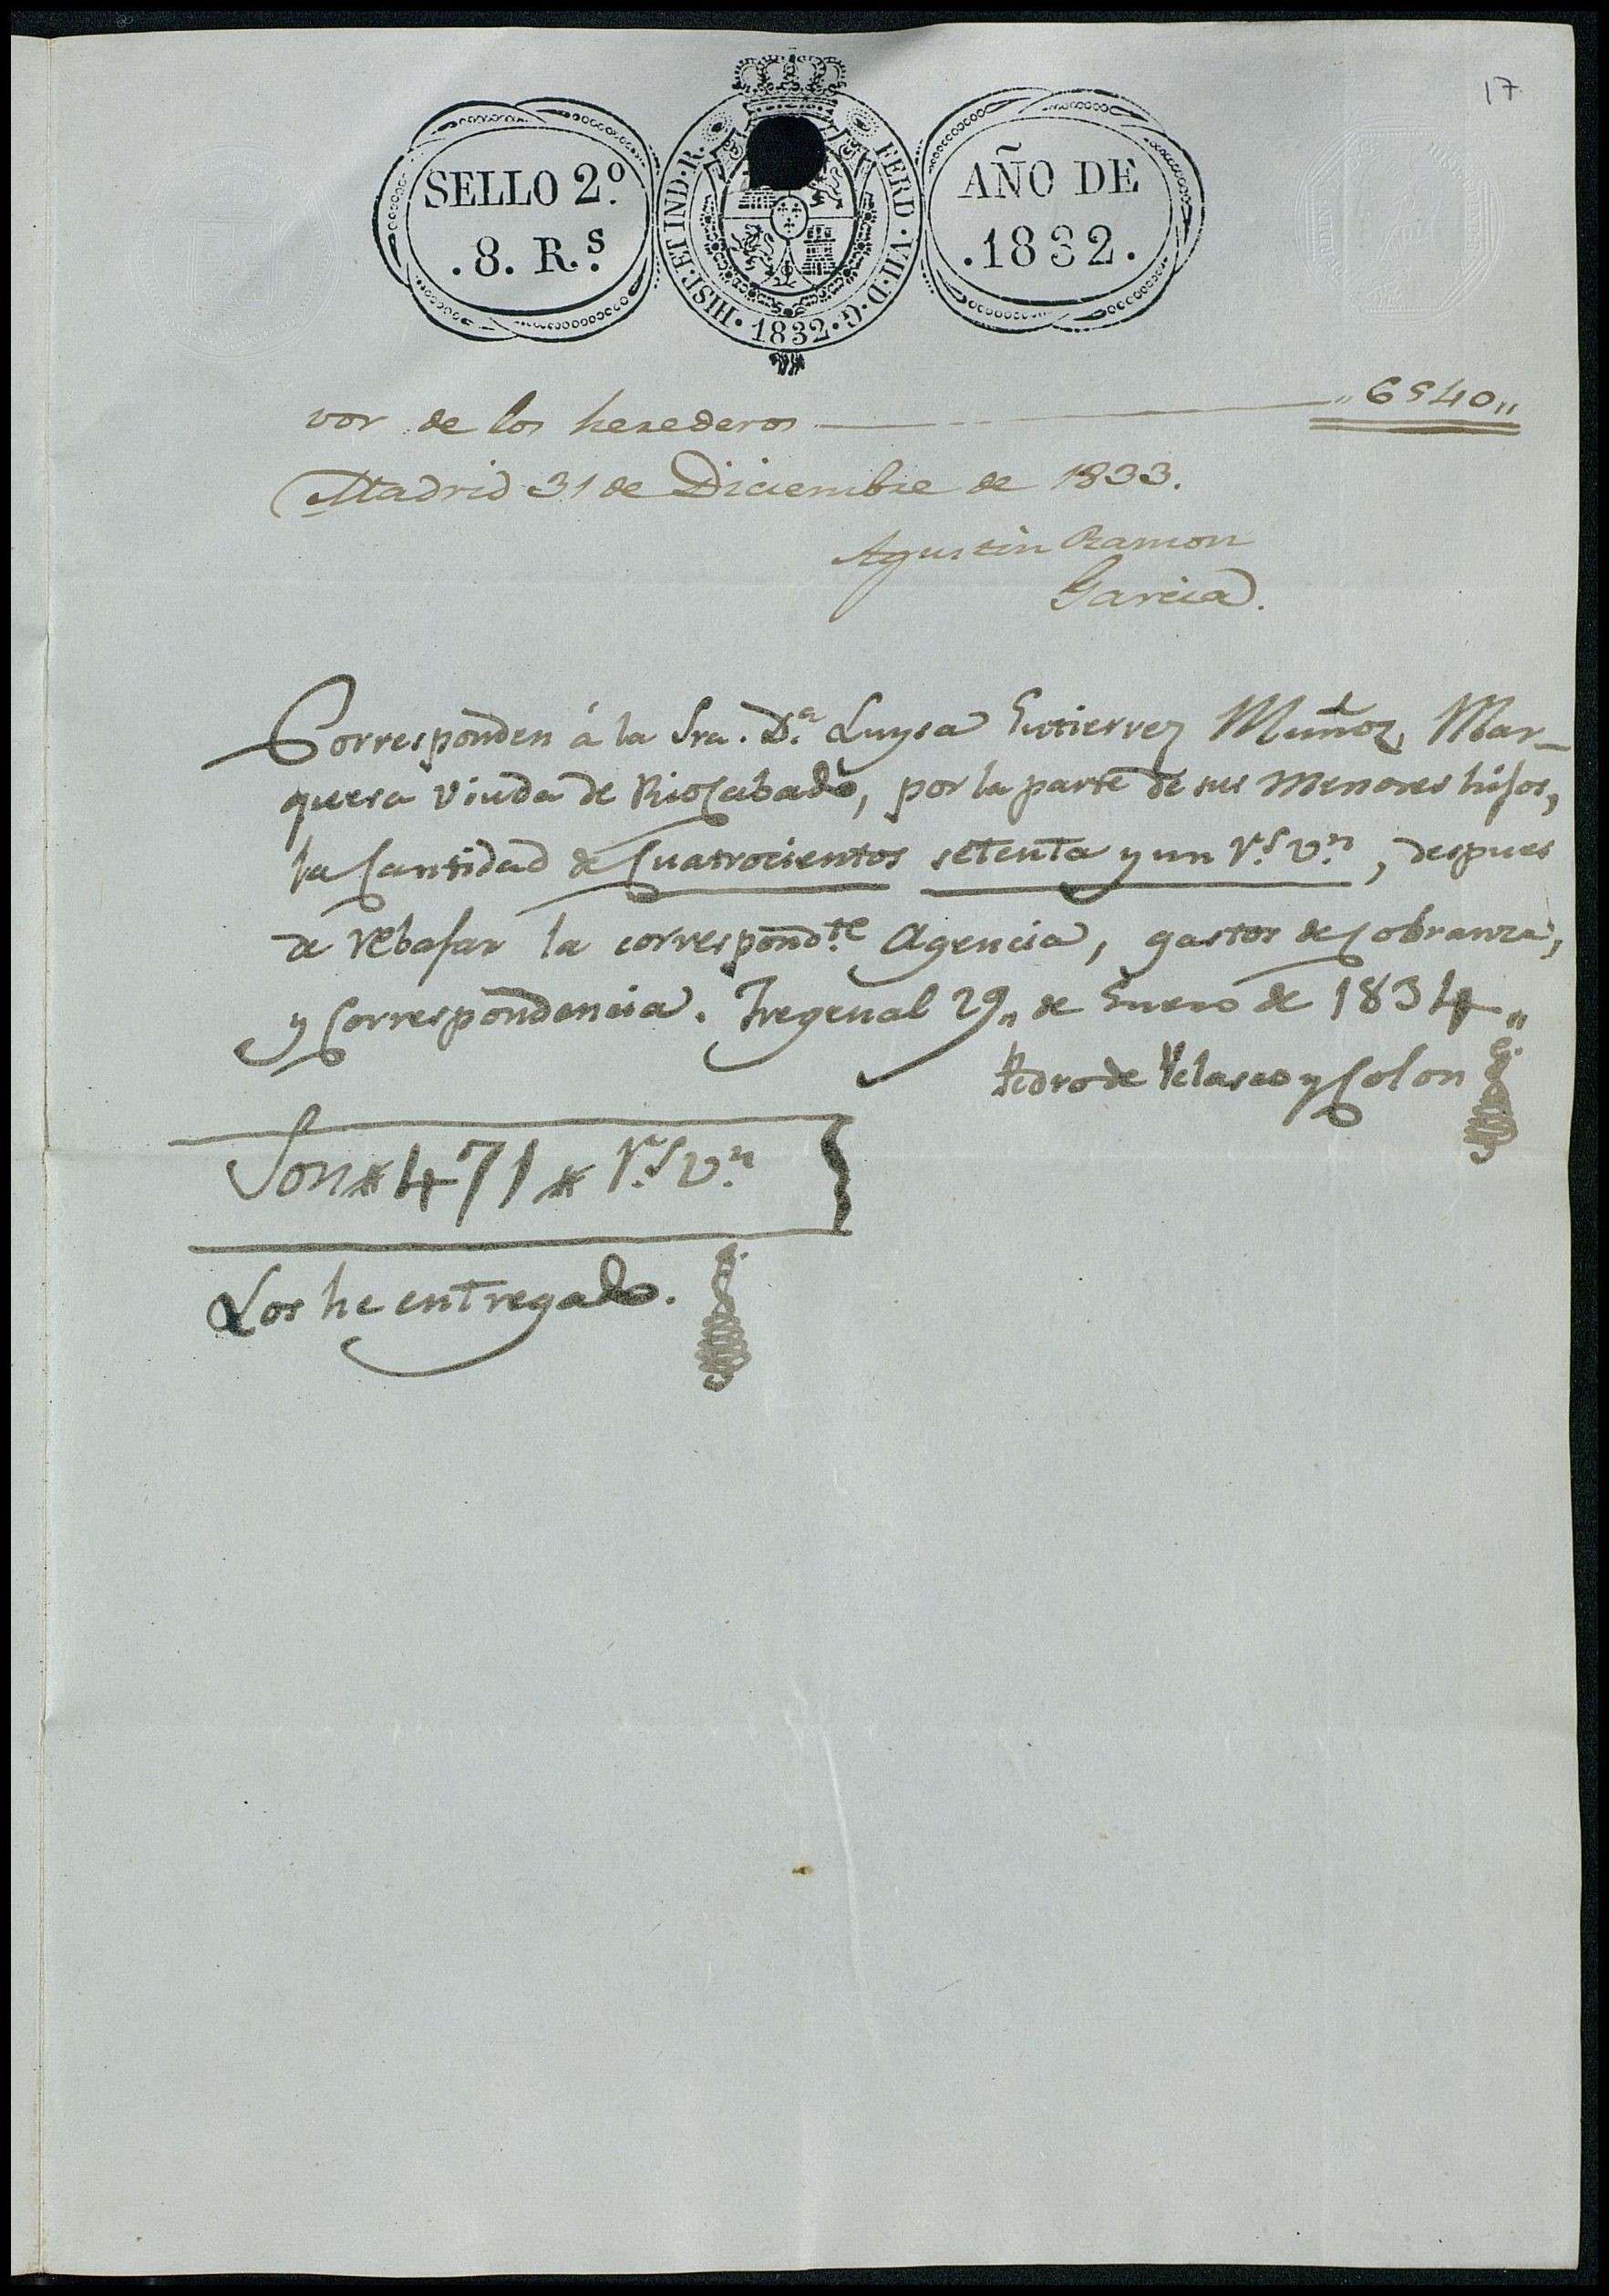 17
SELLO 2.º
.8. R.s
HISP. ET IND. R. FERD. VII. D. G. 1832.
AÑO DE
.1832.
vor de los herederos „6540„
Madrid 31 de Diciembre de 1833.
Agustin Ramon
Garcia.
Corresponden á la Sra. D.ª Luysa Gutierrez Muñoz, Mar-
quesa Viuda de Riocabado, por la parte de sus Menores hijos,
la Cantidad de Cuatrocientos setenta y un r.s v.n, despues
de rebajar la correspond.te Agencia, gastos de Cobranza,
y Correspondencia. Fregenal 29„ de Enero de 1834„
Pedro de Velasco y Colon
Son * 471 * r.s v.n
Los he entregado.